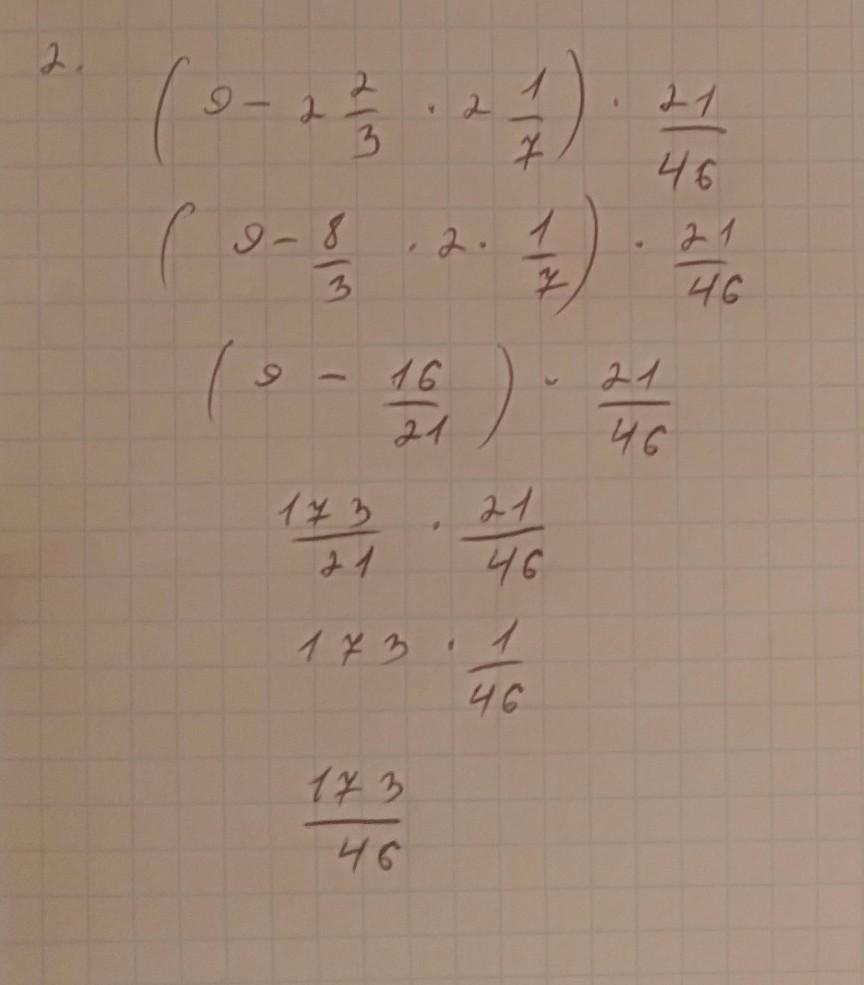 2. (9 - 2 2/3 · 2 1/7) · 21/46
(9 - 8/3 · 2 · 1/7) · 21/46
(9 - 16/21) · 21/46
173/21 · 21/46
173 · 1/46
173/46